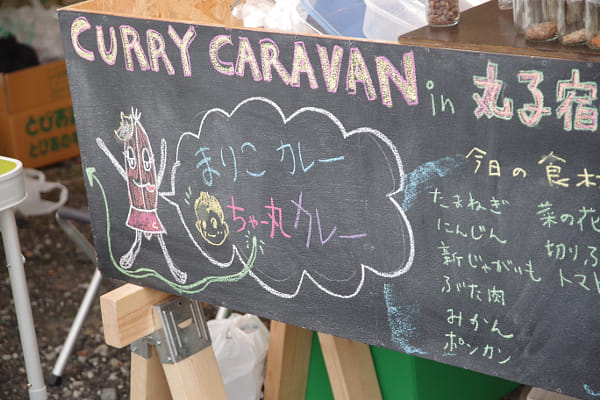 CURRY CARAVAN in 丸子宿
まりこ カレー
ちゃー丸 カレー
今日の食材
たまねぎ
にんじん
新じゃがいも
ぶた肉
みかん
ポンカン
菜の花
切り
トマト
とび